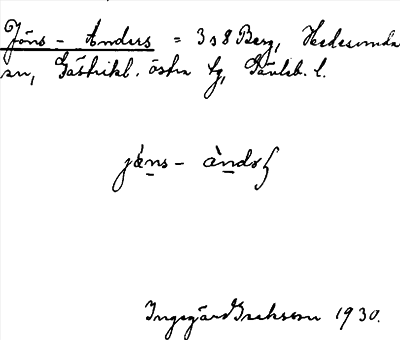 Jöns - Anders = 3 o 8 Berg, Hedesunda
sn, Gästrikl. östra tg, Gävleb. l.
jöns - ànds
Ingegärd Isaksson 1930.